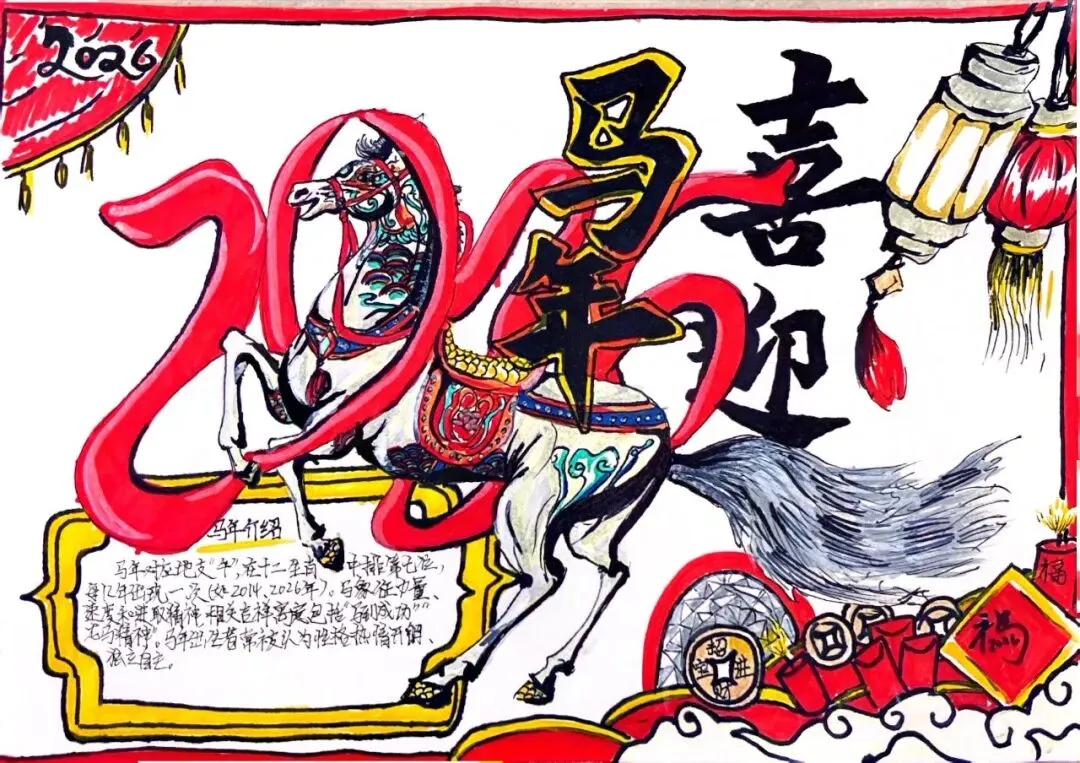 2026
2026
喜迎
马年
马年介绍
马年对应地支"午",在十二生肖中排第七位,
每12年出现一次(如2014、2026年)。马象征力量、
速度和进取精神,相关吉祥寓意包括"马到成功""
龙马精神"。马年出生者常被认为性格热情开朗、
独立自主。
招财进宝
福
福
2026